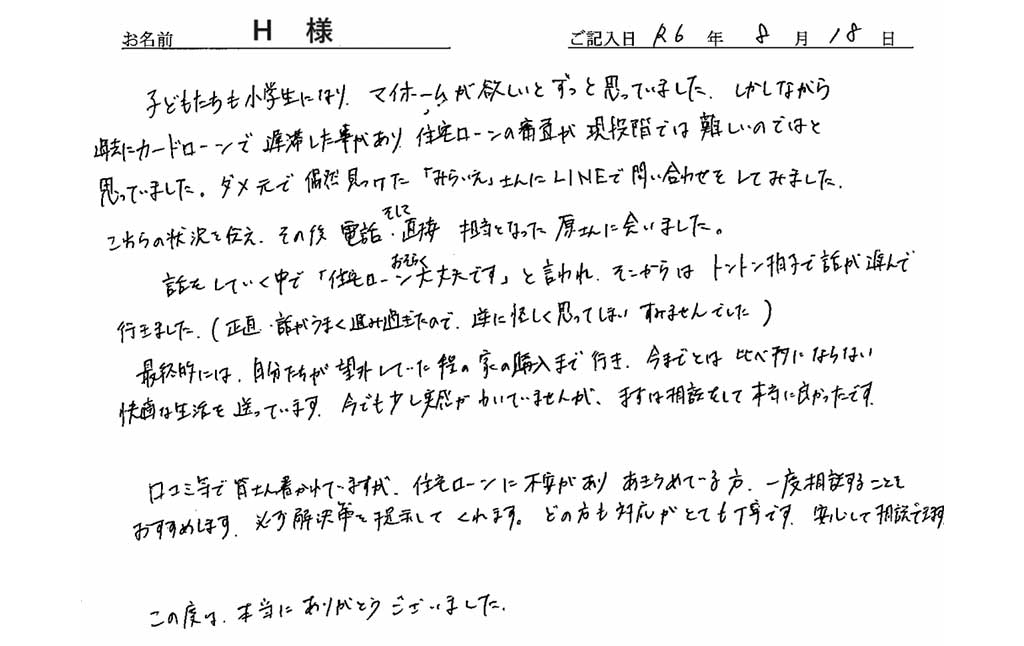 お名前 H 様 ご記入日 R6 年 8 月 18 日
子どもたちも小学生になり、マイホームが欲しいとずっと思っていました。しかしながら
過去にカードローンで遅滞した事があり、住宅ローンの審査が現段階では難しいのではと
思っていました。ダメ元で偶然見つけた「みらいえ」さんにLINEで問い合わせをしてみました。
こちらの状況を伝え、その後電話・そして直接担当となった原さんに会いました。
話をしていく中で「住宅ローンおそらく大丈夫です」と言われ、そこからはトントン拍子で話が進んで
行きました。(正直、話がうまく進み過ぎたので、逆に怪しく思ってしまいすみませんでした)
最終的には、自分たちが望外していた程の家の購入まで行き、今までとは比べ物にならない
快適な生活を送っています。今でも少し実感がわいていませんが、まずは相談をして本当に良かったです。
口コミ等で皆さん書かれていますが、住宅ローンに不安がありあきらめている方、一度相談することを
おすすめします。必ず解決策を提示してくれます。どの方も対応がとても丁寧です。安心して相談できます
この度は、本当にありがとうございました。